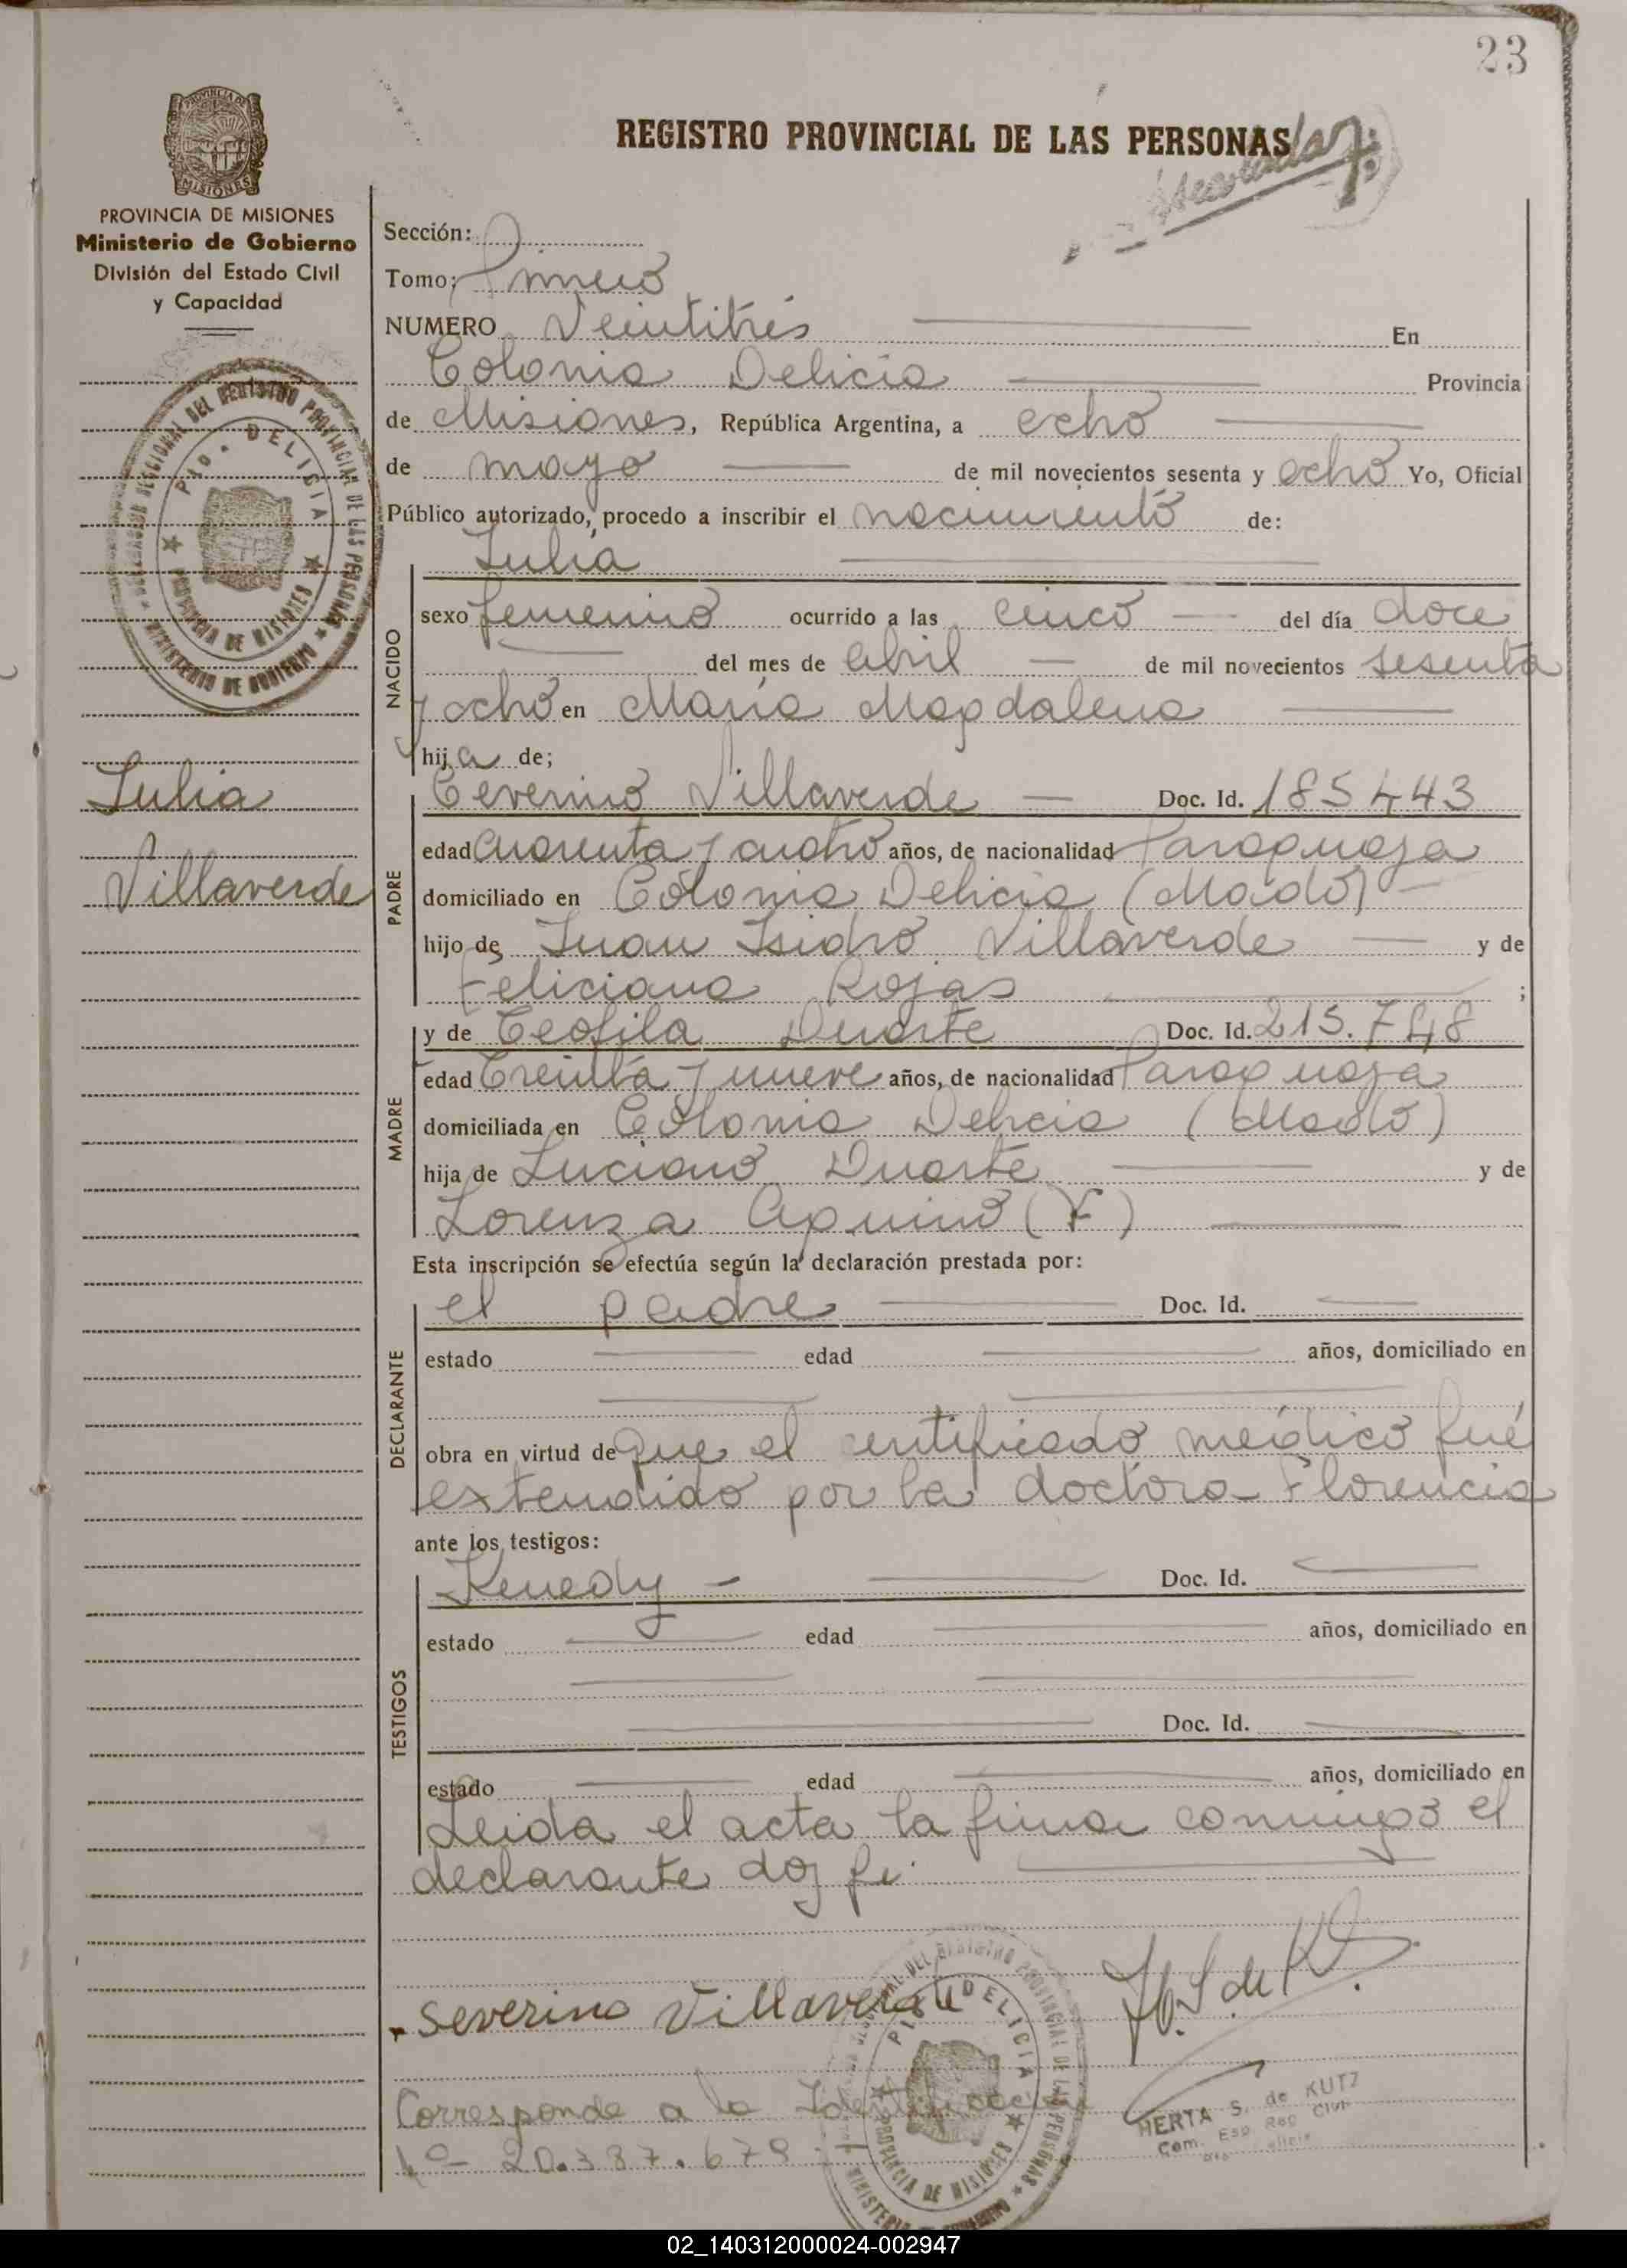 23
REGISTRO PROVINCIAL DE LAS PERSONAS
PROVINCIA DE MISIONES
Ministerio de Gobierno
División del Estado Civil
y Capacidad
Sección:
Tomo: Primero
NUMERO Veintitrés En
Colonia Delicia Provincia
de Misiones, República Argentina, a ocho
de mayo de mil novecientos sesenta y ocho Yo, Oficial
Público autorizado, procedo a inscribir el nacimiento de:
Julia
NACIDO
sexo femenino ocurrido a las cinco del día doce
del mes de abril de mil novecientos sesenta
y ocho en María Magdalena
hija de;
Julia
Villaverde
PADRE
Ceverino Villaverde Doc. Id. 185443
edad cuarenta y cuatro años, de nacionalidad Paraguaya
domiciliado en Colonia Delicia (Mado)
hijo de Juan Isidro Villaverde y de
Feliciana Rojas ;
MADRE
y de Teofila Duarte Doc. Id. 215.748
edad Treinta y nueve años, de nacionalidad Paraguaya
domiciliada en Colonia Delicia (Mado)
hija de Luciano Duarte y de
Lorenza Aquino (F)
Esta inscripción se efectúa según la declaración prestada por:
DECLARANTE
el padre Doc. Id.
estado edad años, domiciliado en
obra en virtud de que el certificado médico fué
extendido por la doctora Florencia
ante los testigos:
TESTIGOS
Kenedy - Doc. Id.
estado edad años, domiciliado en
Doc. Id.
estado edad años, domiciliado en
Leida el acta la firma conmigo el
declarante doy fe.
Severino Villaverde
Corresponde a la Identificación
Nº 20.387.679
HERTA S. de KUTZ
02_140312000024-002947